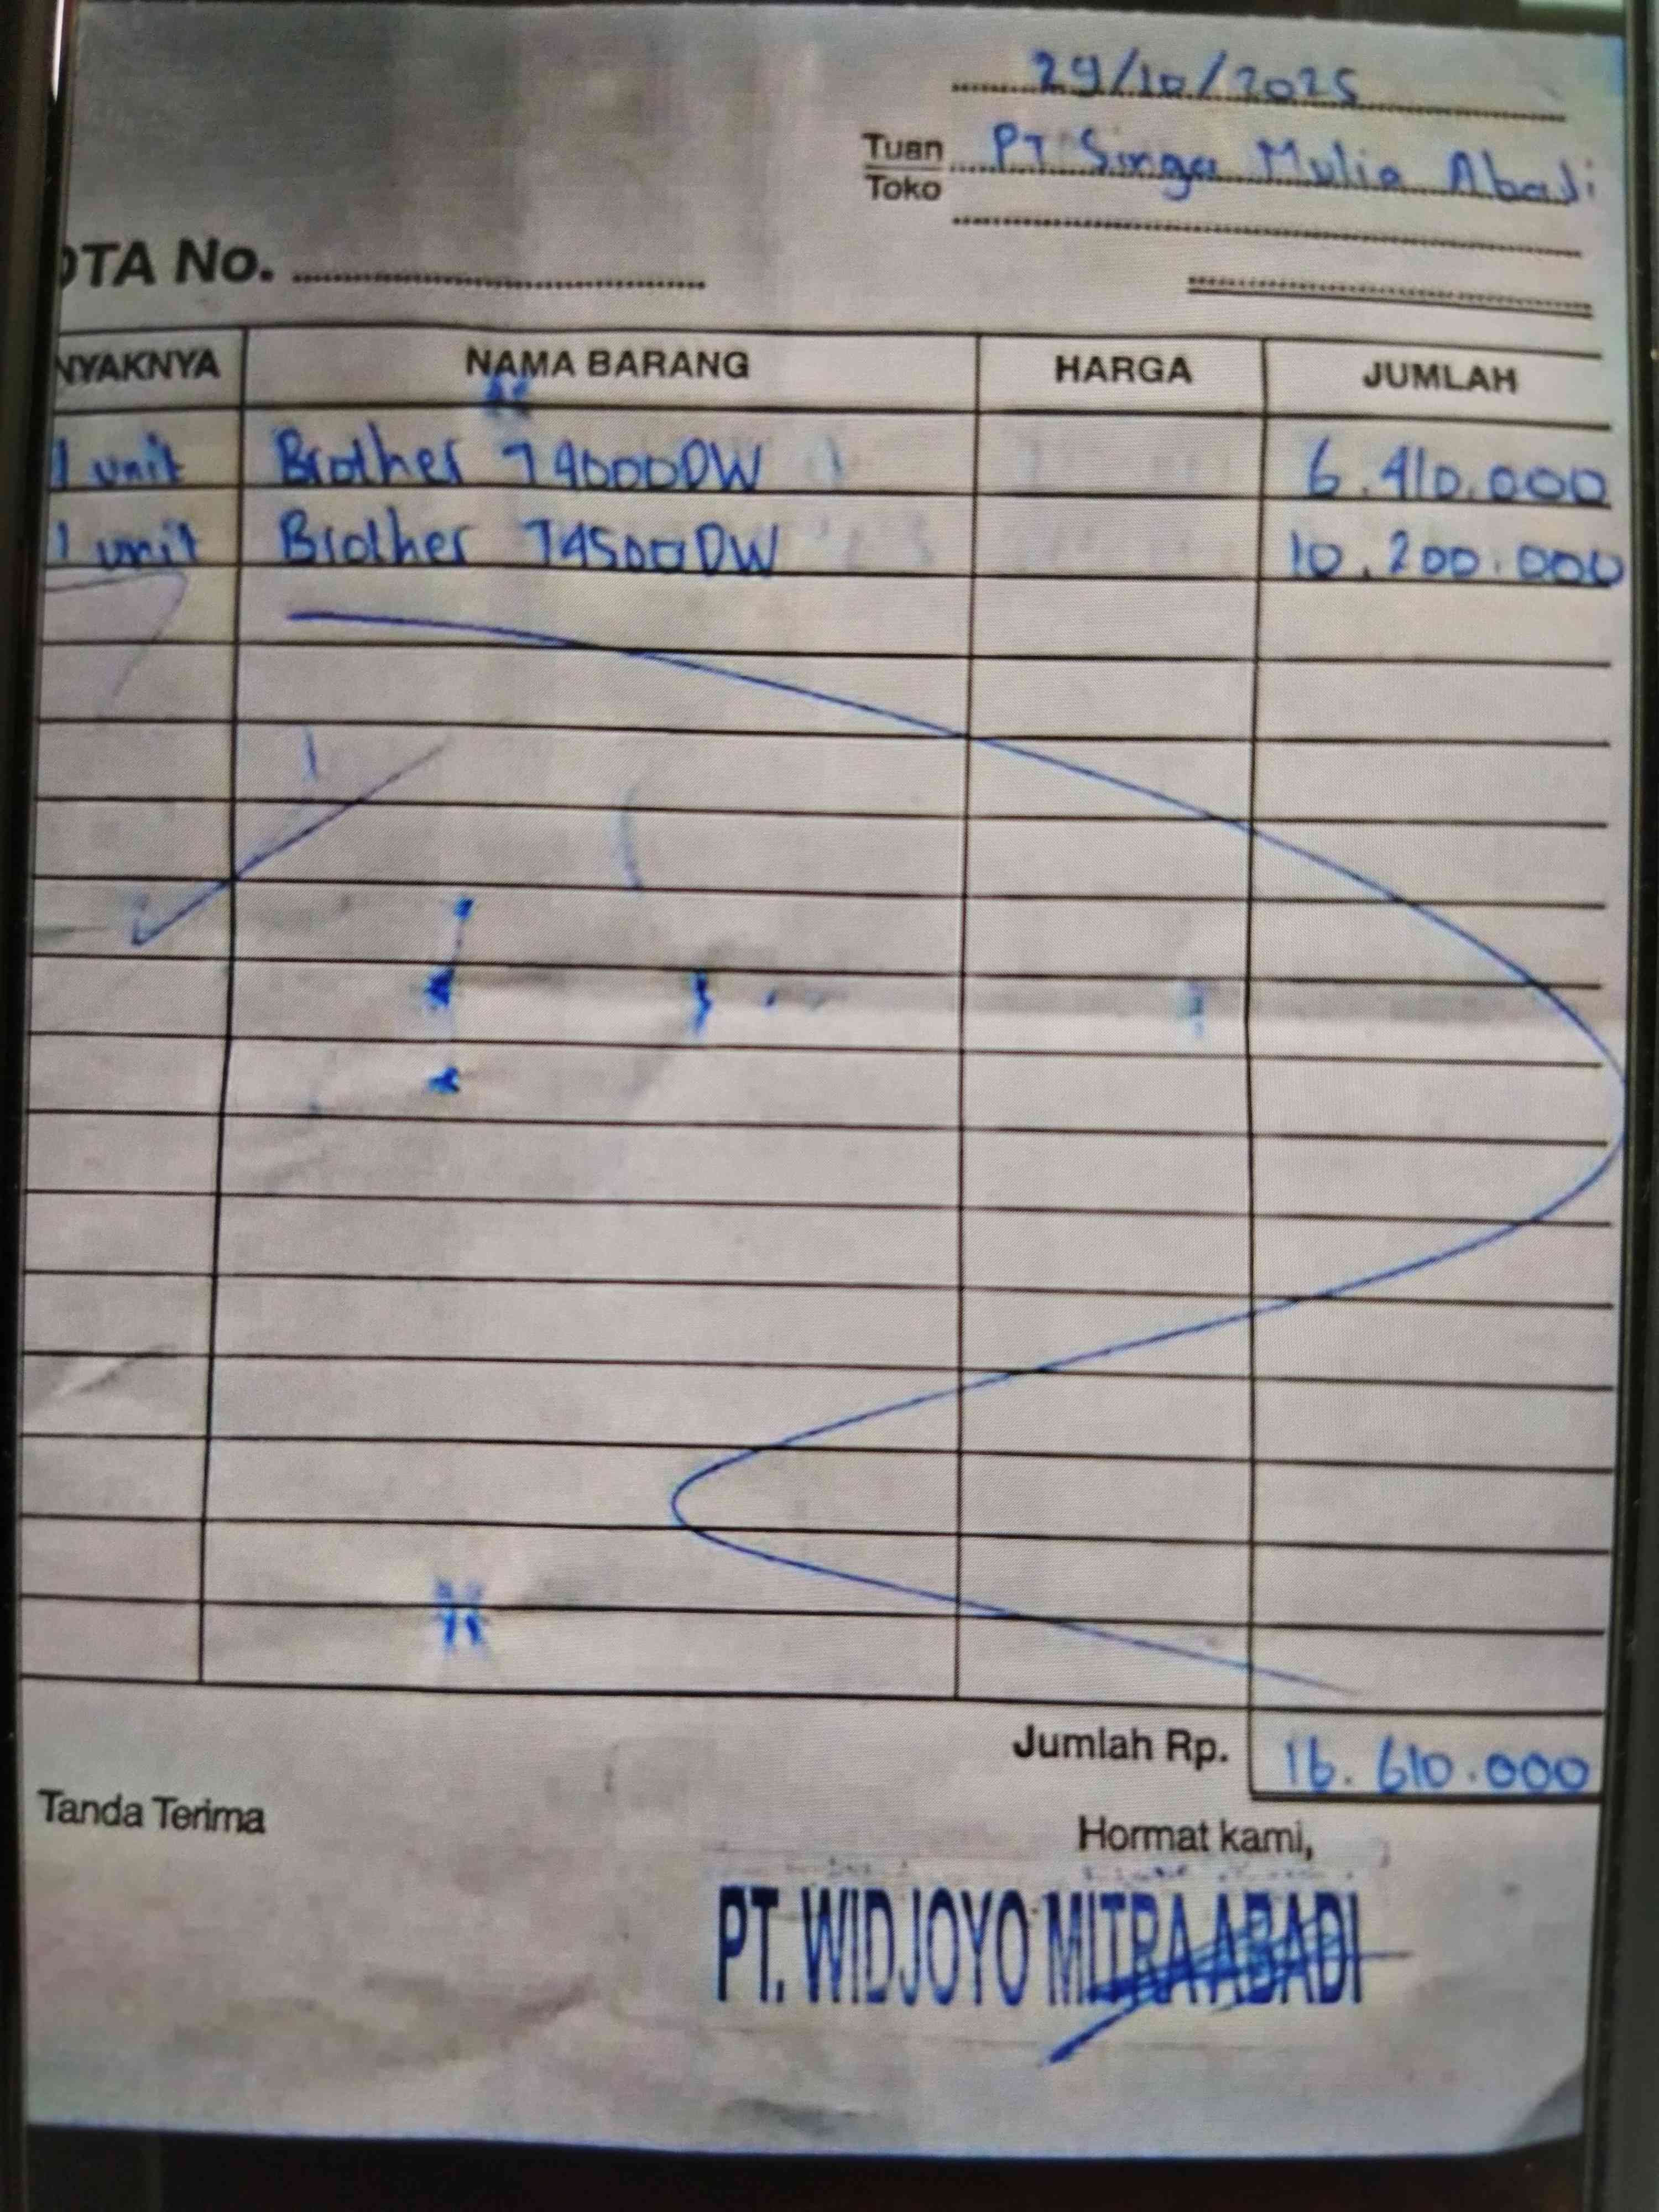 29/10/2025
Tuan PT Singa Mulia Abadi
Toko
OTA No.
NYAKNYA NAMA BARANG HARGA JUMLAH
1 unit Brother T4000DW 6.410.000
1 unit Brother T4500DW 10.200.000
Jumlah Rp. 16.610.000
Tanda Terima
Hormat kami,
PT. WIDJOYO MITRA ABADI